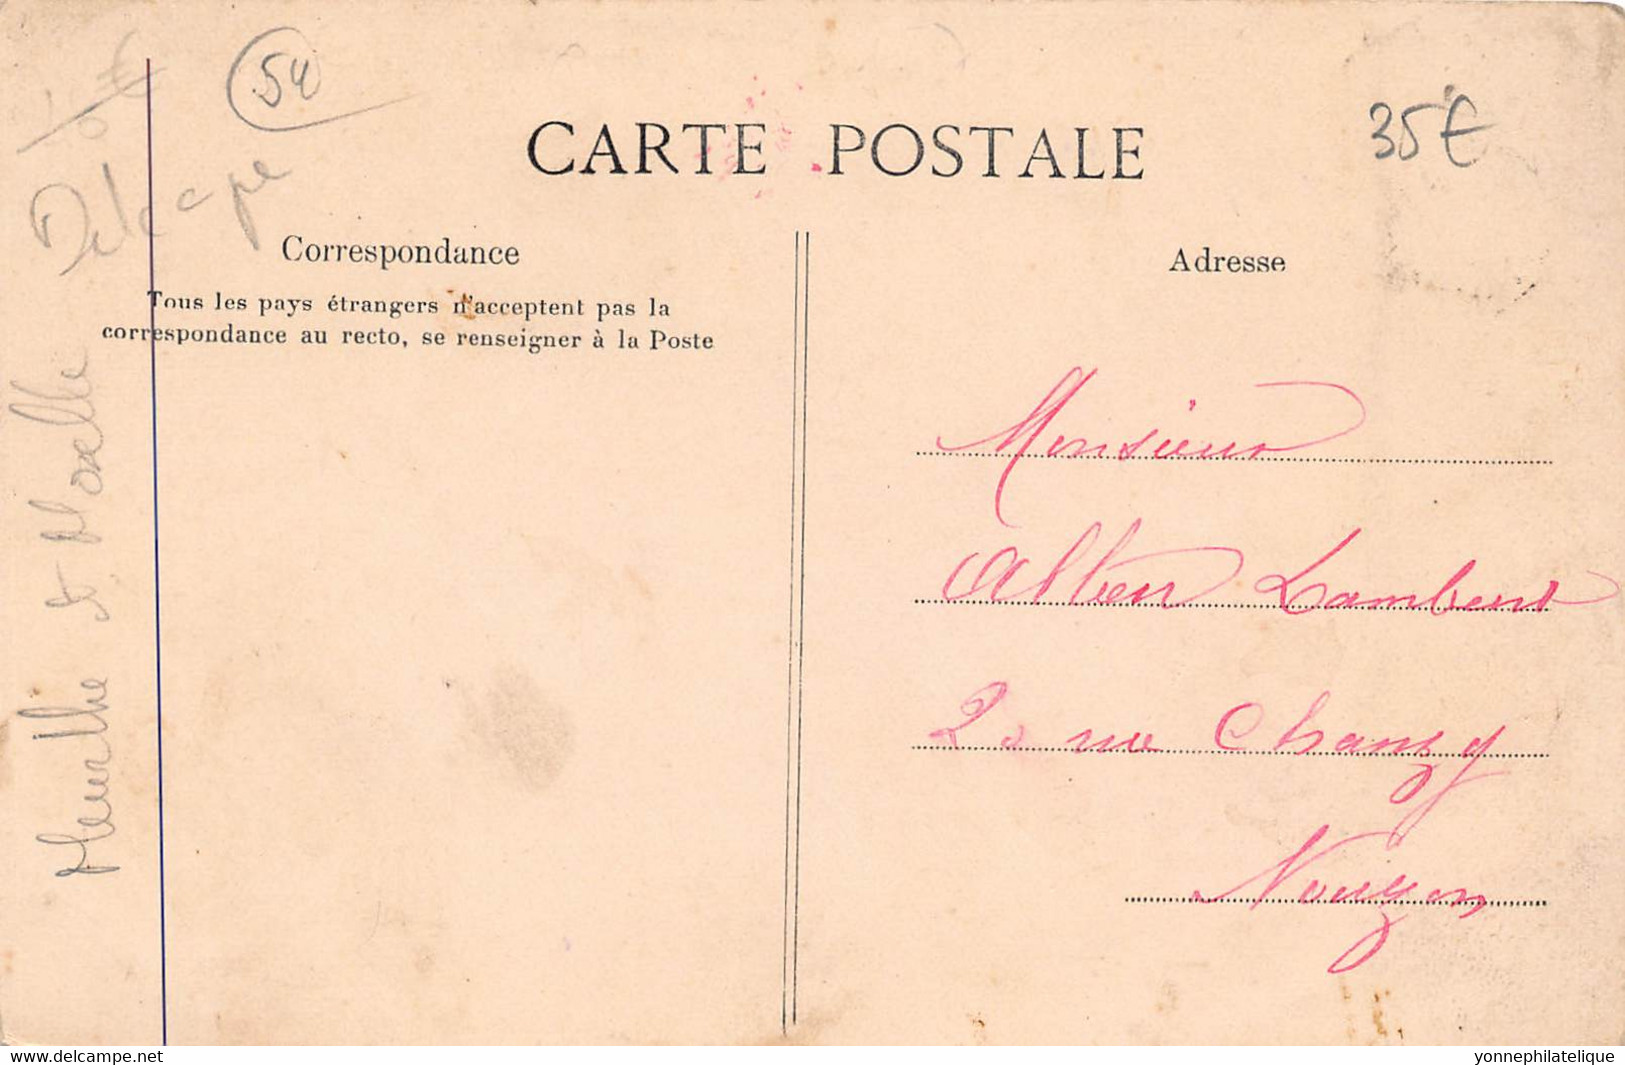 54
35€
Delcampe
CARTE POSTALE
Correspondance
Adresse
Tous les pays étrangers n'acceptent pas la
correspondance au recto, se renseigner à la Poste
Meurthe & Moselle
Monsieur
Alben Lambert
20 rue Chanzy
Nouzon
www.delcampe.net
yonnephilatelique